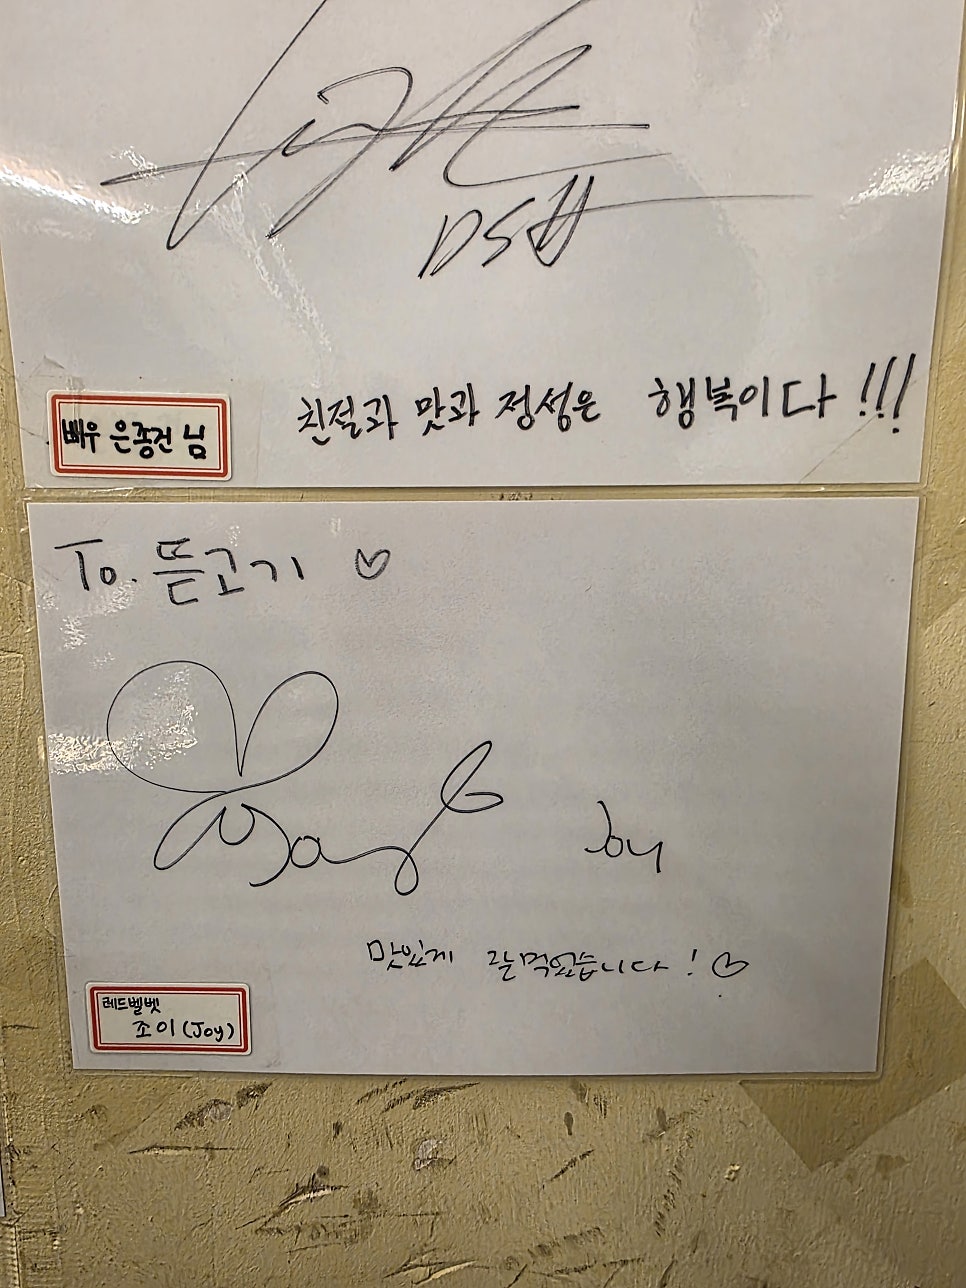 친절과 맛과 정성은 행복이다 !!!
배우 은종건 님
To. 뜯고기 ♡
Joy
맛있게 잘먹었습니다! ♡
레드벨벳
조이(Joy)